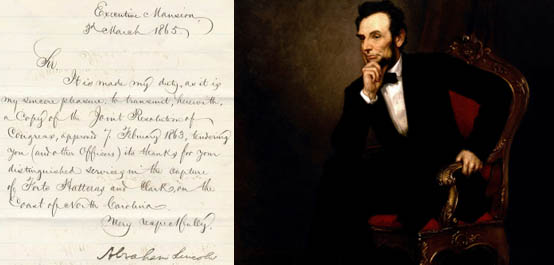 Executive Mansion,
3d March 1865
Sir,
It is made my duty, as it is
my sincere pleasure, to transmit, herewith,
a Copy of the Joint Resolution of
Congress, approved 7 February 1863, tendering
you (and other Officers) its thanks for your
distinguished services in the capture
of Forts Hatteras and Clark, on the
Coast of North Carolina.
Very respectfully,
Abraham Lincoln